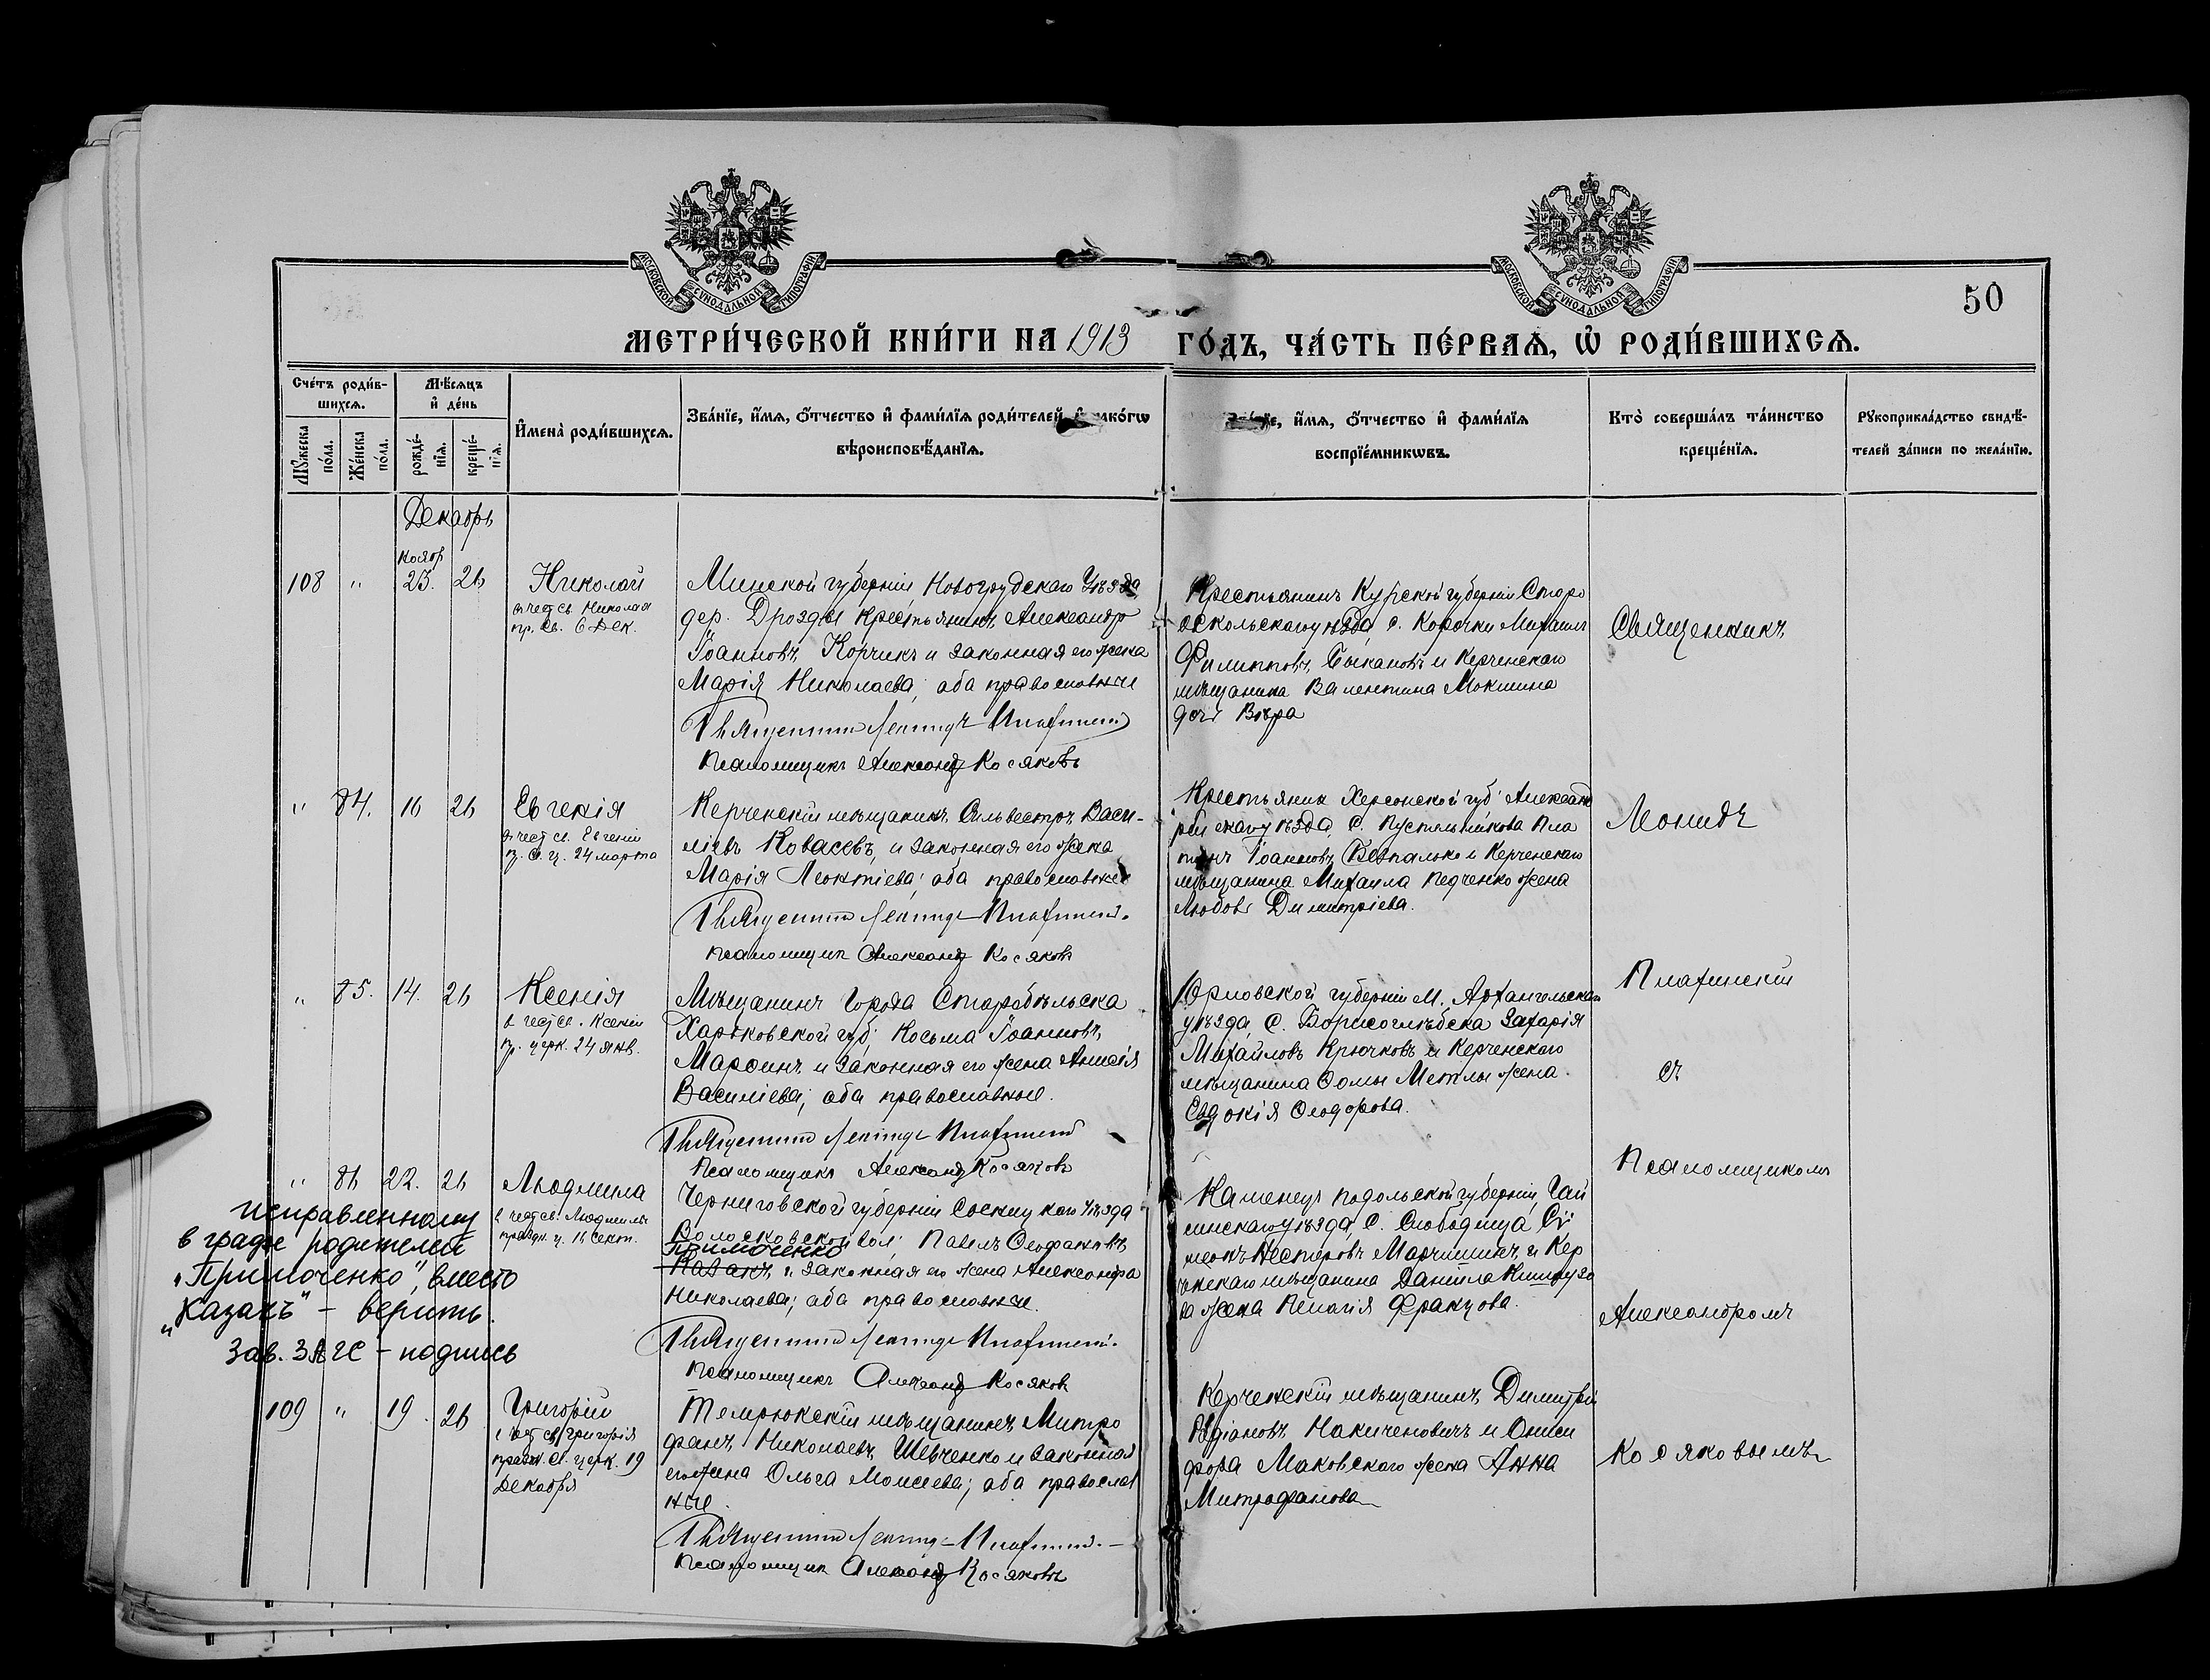 МОСКОВСКОЙ СѴНОДАЛЬНОЙ ТИПОГРАФІИ
МОСКОВСКОЙ СѴНОДАЛЬНОЙ ТИПОГРАФІИ
50
МЕТРИ́ЧЕСКОЙ КНИ́ГИ НА 1913 ГО́ДЪ, ЧА́СТЬ ПЕ́РВАѦ, Ѡ РОДИ́ВШИХСѦ.
Сче́тъ роди́в-
шихсѧ.
Мꙋжеска по́ла.
Же́нска по́ла.
Мѣ́сѧцъ
и҆ де́нь
рожде́-
нїѧ.
креще́-
нїѧ.
И҆мена̀ роди́вшихсѧ.
Зва́нїе, и҆́мѧ, ѻ҆́тчество и҆ фами́лїѧ роди́телей, и҆ како́гѡ
вѣроисповѣ́данїѧ.
Зва́нїе, и҆́мѧ, ѻ҆́тчество и҆ фами́лїѧ
воспрїе́мникѡвъ.
Кто̀ соверша́лъ та́инство
креще́нїѧ.
Рꙋкоприкла́дство свидѣ́-
телей за́писи по жела́нїю.
Декабрь
108
"
Ноябр
25.
26
Николай
въ чест св. Николая
пр. св. 6 Дек.
Минской губерніи Новогрудскаго Уѣзда,
дер. Дрозды крестьянинъ Александръ
Іоанновъ Корчикъ и законная его жена
Марія Николаева; оба православные
Священникъ Леонидъ Пиахинскій
Псаломщикъ Александръ Косяковъ
Крестьянинъ Курской губерніи Старо
оскольскаго уѣзда, с. Корочки Михаилъ
Филипповъ Быкановъ и Керченскаго
мѣщанина Валентина Мокшина
дочь Вѣра
Священникъ
"
84.
16
26
Евгенія
въ чест св. Евгеніи
п. св. ц. 24 марта
Керченскій мѣщанинъ Сильвестръ Васи-
ліевъ Ковасевъ, и законная его жена
Марія Леонтіева; оба православные
Священникъ Леонидъ Пиахинскій.
Псаломщикъ Александръ Косяковъ
Крестьянинъ Херсонской губ. Александ
рійскаго уѣзда, с. Пустельникова Пла
тонъ Іоанновъ Безпалько и Керченскаго
мѣщанина Михаила Педченко жена
Любовь Димитріева.
Леонидъ
"
85.
14.
26
Ксенія
в чест св. Ксеніи
пр. церк. 24 янв.
Мѣщанинъ Города Старобѣльска
Харьковской губ; Косьма Іоанновъ
Марфинъ и законная его жена Анисія
Василіева; оба православные.
Священникъ Леонидъ Пиахинскій
Псаломщикъ Александръ Косяковъ
Орловской губерніи М. Архангельскаго
уѣзда, с. Борисоглѣбска Захарія
Михайловъ Крючковъ и Керченскаго
мѣщанина Ѳомы Метлы жена
Евдокія Ѳеодорова.
Пиахинскій
съ
"
86
22.
26
Людмила
в чест св. Людмилы
праздн. ц. 16 Сент.
Черниговской губерніи Сосницкаго уѣзда
Волосковской вол; Павелъ Ѳеофановъ
Примоченко
Казакъ и законная его жена Александра
Николаева; оба православные.
Священникъ Леонидъ Пиахинскій.
Псаломщикъ Александръ Косяковъ
Каменецъ подольской губерніи, Гай
синскаго уѣзда, с. Слободища Си
меонъ Несторовъ Марчишинъ, и Кер
ченскаго мѣщанина Даніила
жена Пелагія Францова.
Псаломщикомъ
Александромъ
исправленному
в графе родителей
"Примоченко", вместо
"Казакъ" - верить.
Зав. ЗАГС - подпись
109
"
19.
26
Григорій
в чест св. Григорія
празд. св. церк. 19
Декабря
Темрюкскій мѣщанинъ Митро
фанъ Николаевъ Шевченко и законная
его жена Ольга Моисеева; оба православ
ные.
Священникъ Леонидъ Пиахинскій.
Псаломщикъ Александръ Косяковъ
Керченскій мѣщанинъ Димитрій
Накиченовичъ иОниси
фора Маковскаго жена Анна
Митрофанова
Косяковымъ